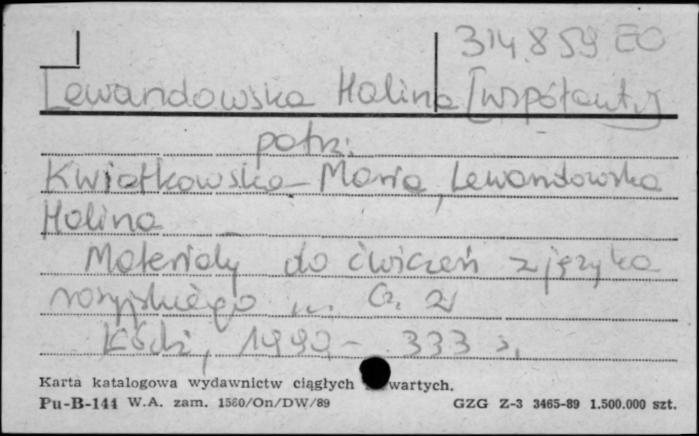 314.859 EO
Lewandowska Halina [współaut.]
patrz:
Kwiatkowska Maria, Lewandowska
Halina
Materiały do ćwiczeń z języka
rosyjskiego ... Cz. 2
Łódź, 1990 - 333 s.
Karta katalogowa wydawnictw ciągłych wartych.
Pu-B-144 W.A. zam. 1560/On/DW/89 GZG Z-3 3465-89 1.500.000 szt.